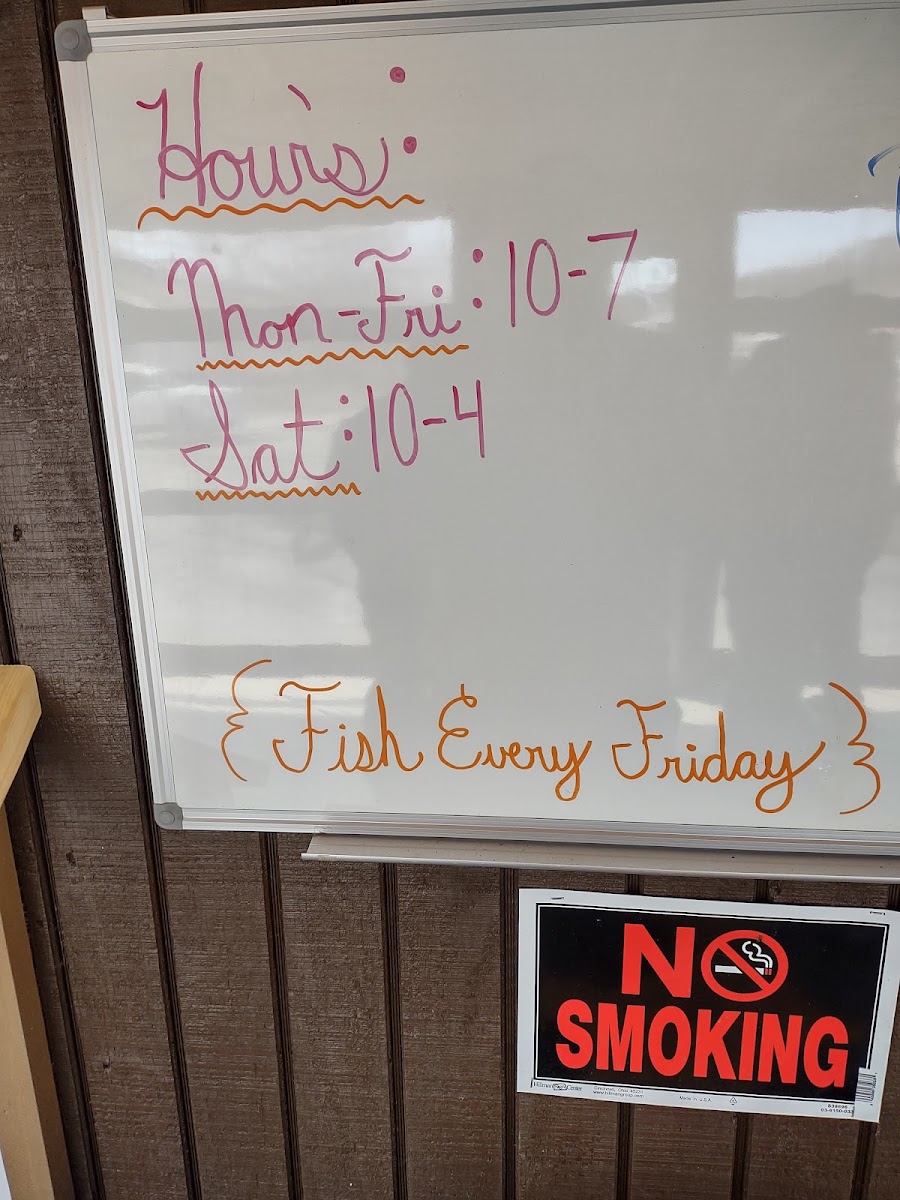 Hour's:
Mon-Fri: 10-7
Sat: 10-4
{ Fish Every Friday }
NO
SMOKING
Hillman
Center
Cincinnati, Ohio 45231
www.hillmangroup.com
Made in U.S.A.
839896